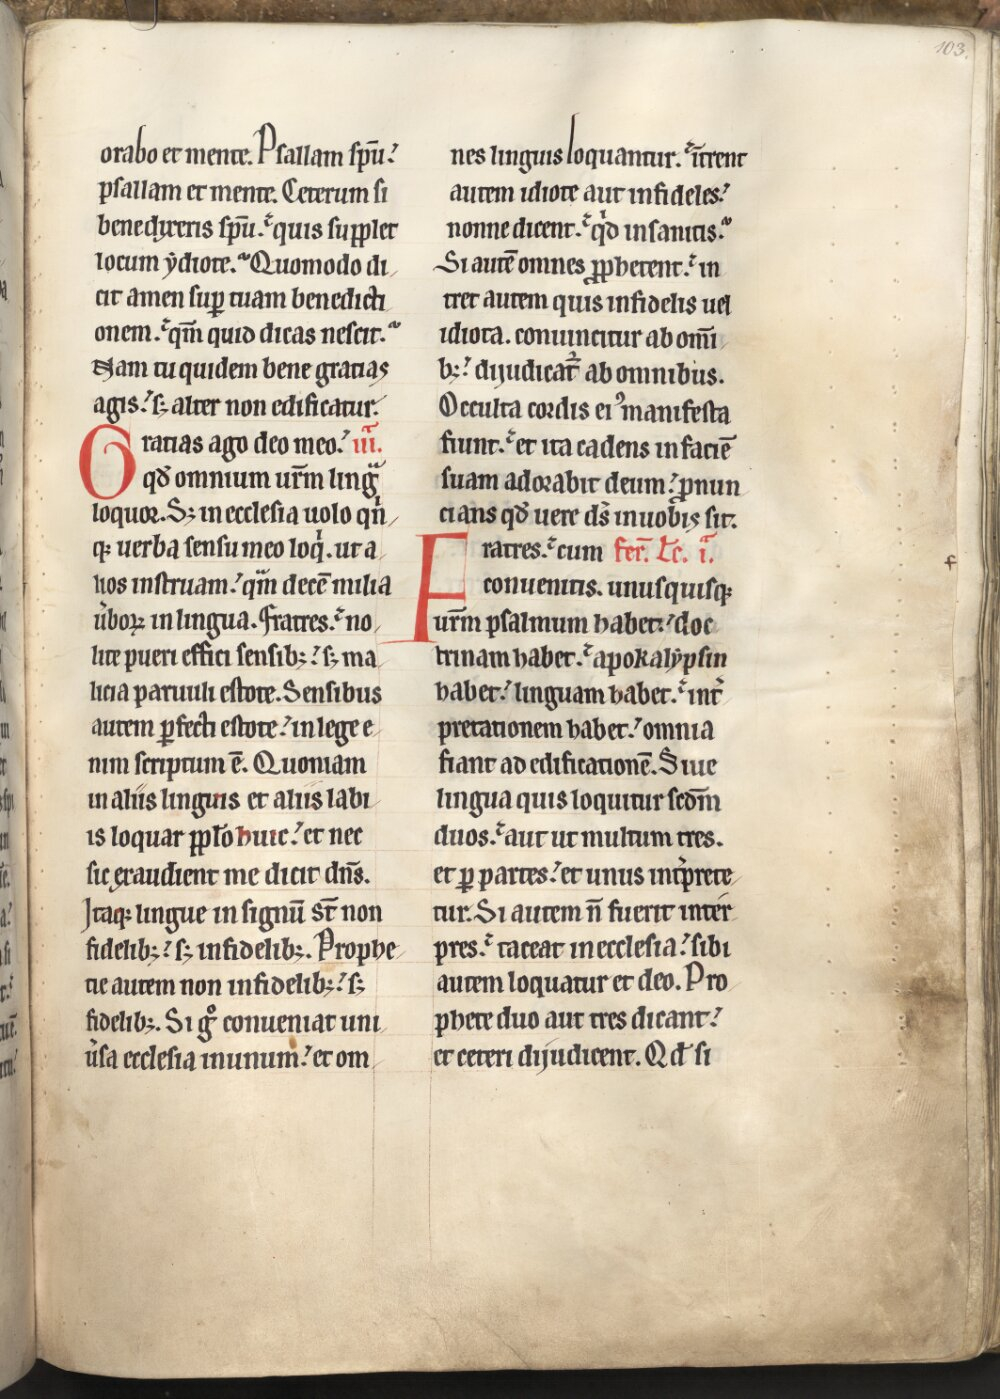 103.
orabo et mente. Psallam sp̄u?
psallam et mente. Ceterum si
benedyxeris sp̄u. quis supplet
locum ẏdiote. Quomodo di
cit amen sup̱ tuam benedicti
onem. qm̄ quid dicas nescit.
Nam tu quidem bene gratias
agis? sꝫ alter non edificatur.
Gratias ago deo meo? iii.
qđ omnium ur̄m lingᷓ
loquor. Sꝫ in ecclesia uolo qn̄
qꝫ uerba sensu meo loq̇. ut a
lios instruam? qᷓm decē milia
u̇boꝝ in lingua. Fratres. no
lite pueri effici sensibꝫ? sꝫ ma
licia paruuli estote. Sensibus
autem ꝑfecti estote? in lege e
nim scriptum ē. Quoniam
in aliis linguis et aliis labi
is loquar pp̄lo huic? et nec
sic exaudient me dicit dn̄s.
Itaqꝫ lingue in signū st̄ non
fidelibꝫ? sꝫ infidelibꝫ. Prophe
tie autem non infidelibꝫ? sꝫ
fidelibꝫ. Si gͦ conueniat uni
u̇sa ecclesia in unum? et om
nes linguis loquantur. īt̄rent
autem idiote aut infideles?
nonne dicent. qd̓ insanitis.
Si autē omnes ꝓphetent. in
tret autem quis infidelis uel
idiota. conuincitur ab om̄i
bꝫ? dijudicat᷑ ab omnibus.
Occulta cordis eiꝰ manifesta
fiunt. et ita cadens in faciē
suam adorabit deum? ꝓnun
cians qđ uere ds̄ in uobis sit.
Fratres. cum fer̄. Lc̄. i.
conuenitis. unusquisqꝫ
ur̄m psalmum habet? doc
trinam habet. apokalẏpsin
habet? linguam habet. int᷑
pretationem habet? omnia
fiant ad edificationē. Siue
lingua quis loquitur scdm̄
duos. aut ut multum tres.
et ꝑ partes? et unus int᷑prete
tur. Si autem n̄ fuerit inter
pres. taceat in ecclesia? sibi
autem loquatur et deo. Pro
phete duo aut tres dicant?
et ceteri dijudicent. Qđ si
f